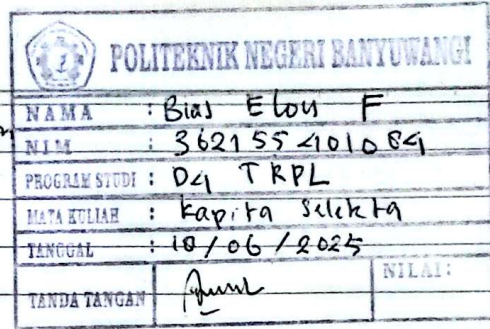 POLITEKNIK NEGERI BANYUWANGI
NAMA : Bias Elou F
NIM : 362155401084
PROGRAM STUDI : D4 TRPL
MATA KULIAH : Kapita Selekta
TANGGAL : 18/06/2025
TANDA TANGAN
NILAI: